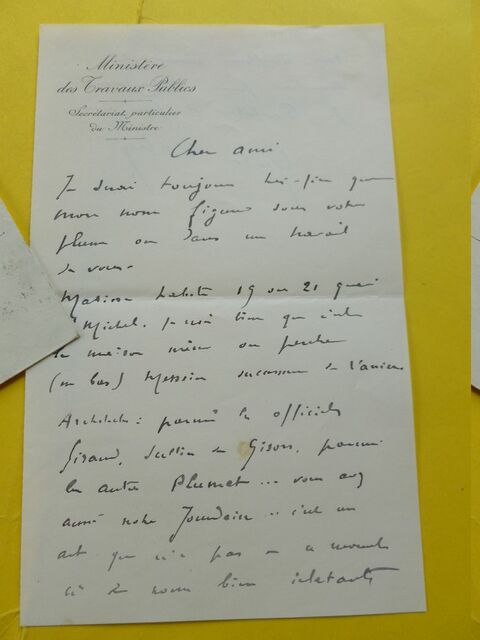 Ministère
des Travaux Publics
Secrétariat particulier
du Ministre
Cher ami
Je serai toujours très-fier que
mon nom figure sous votre
plume ou dans un travail
de vous.
Matisse habite 19 ou 21 quai
St Michel. Je crois bien que c'est
la maison même où perche
(en bas) Messein successeur de Vanier
Architectes : parmi les officiels
Giraud, de Gisors, parmi
les autres Plumet... vous avez
aussi notre Jourdain .. c'est un
art qui n'a pas en ce moment
ci de noms bien éclatants